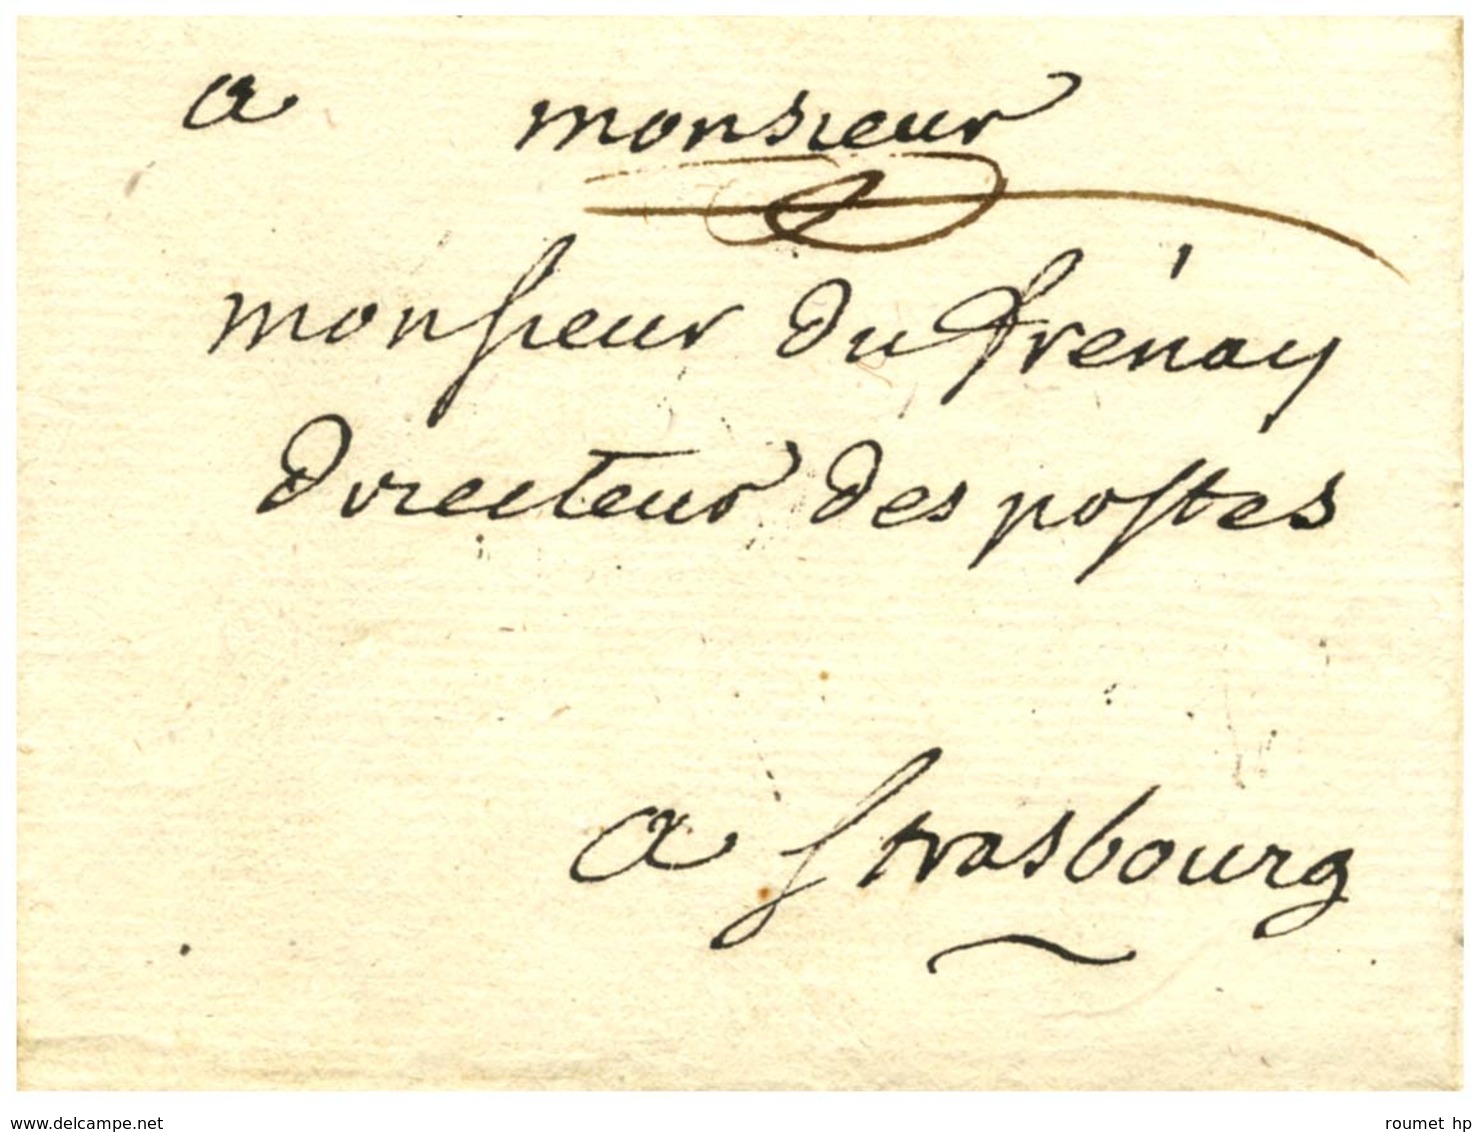 a monsieur
monsieur du frénay
directeur des postes
a strasbourg
www.delcampe.net
roumet hp